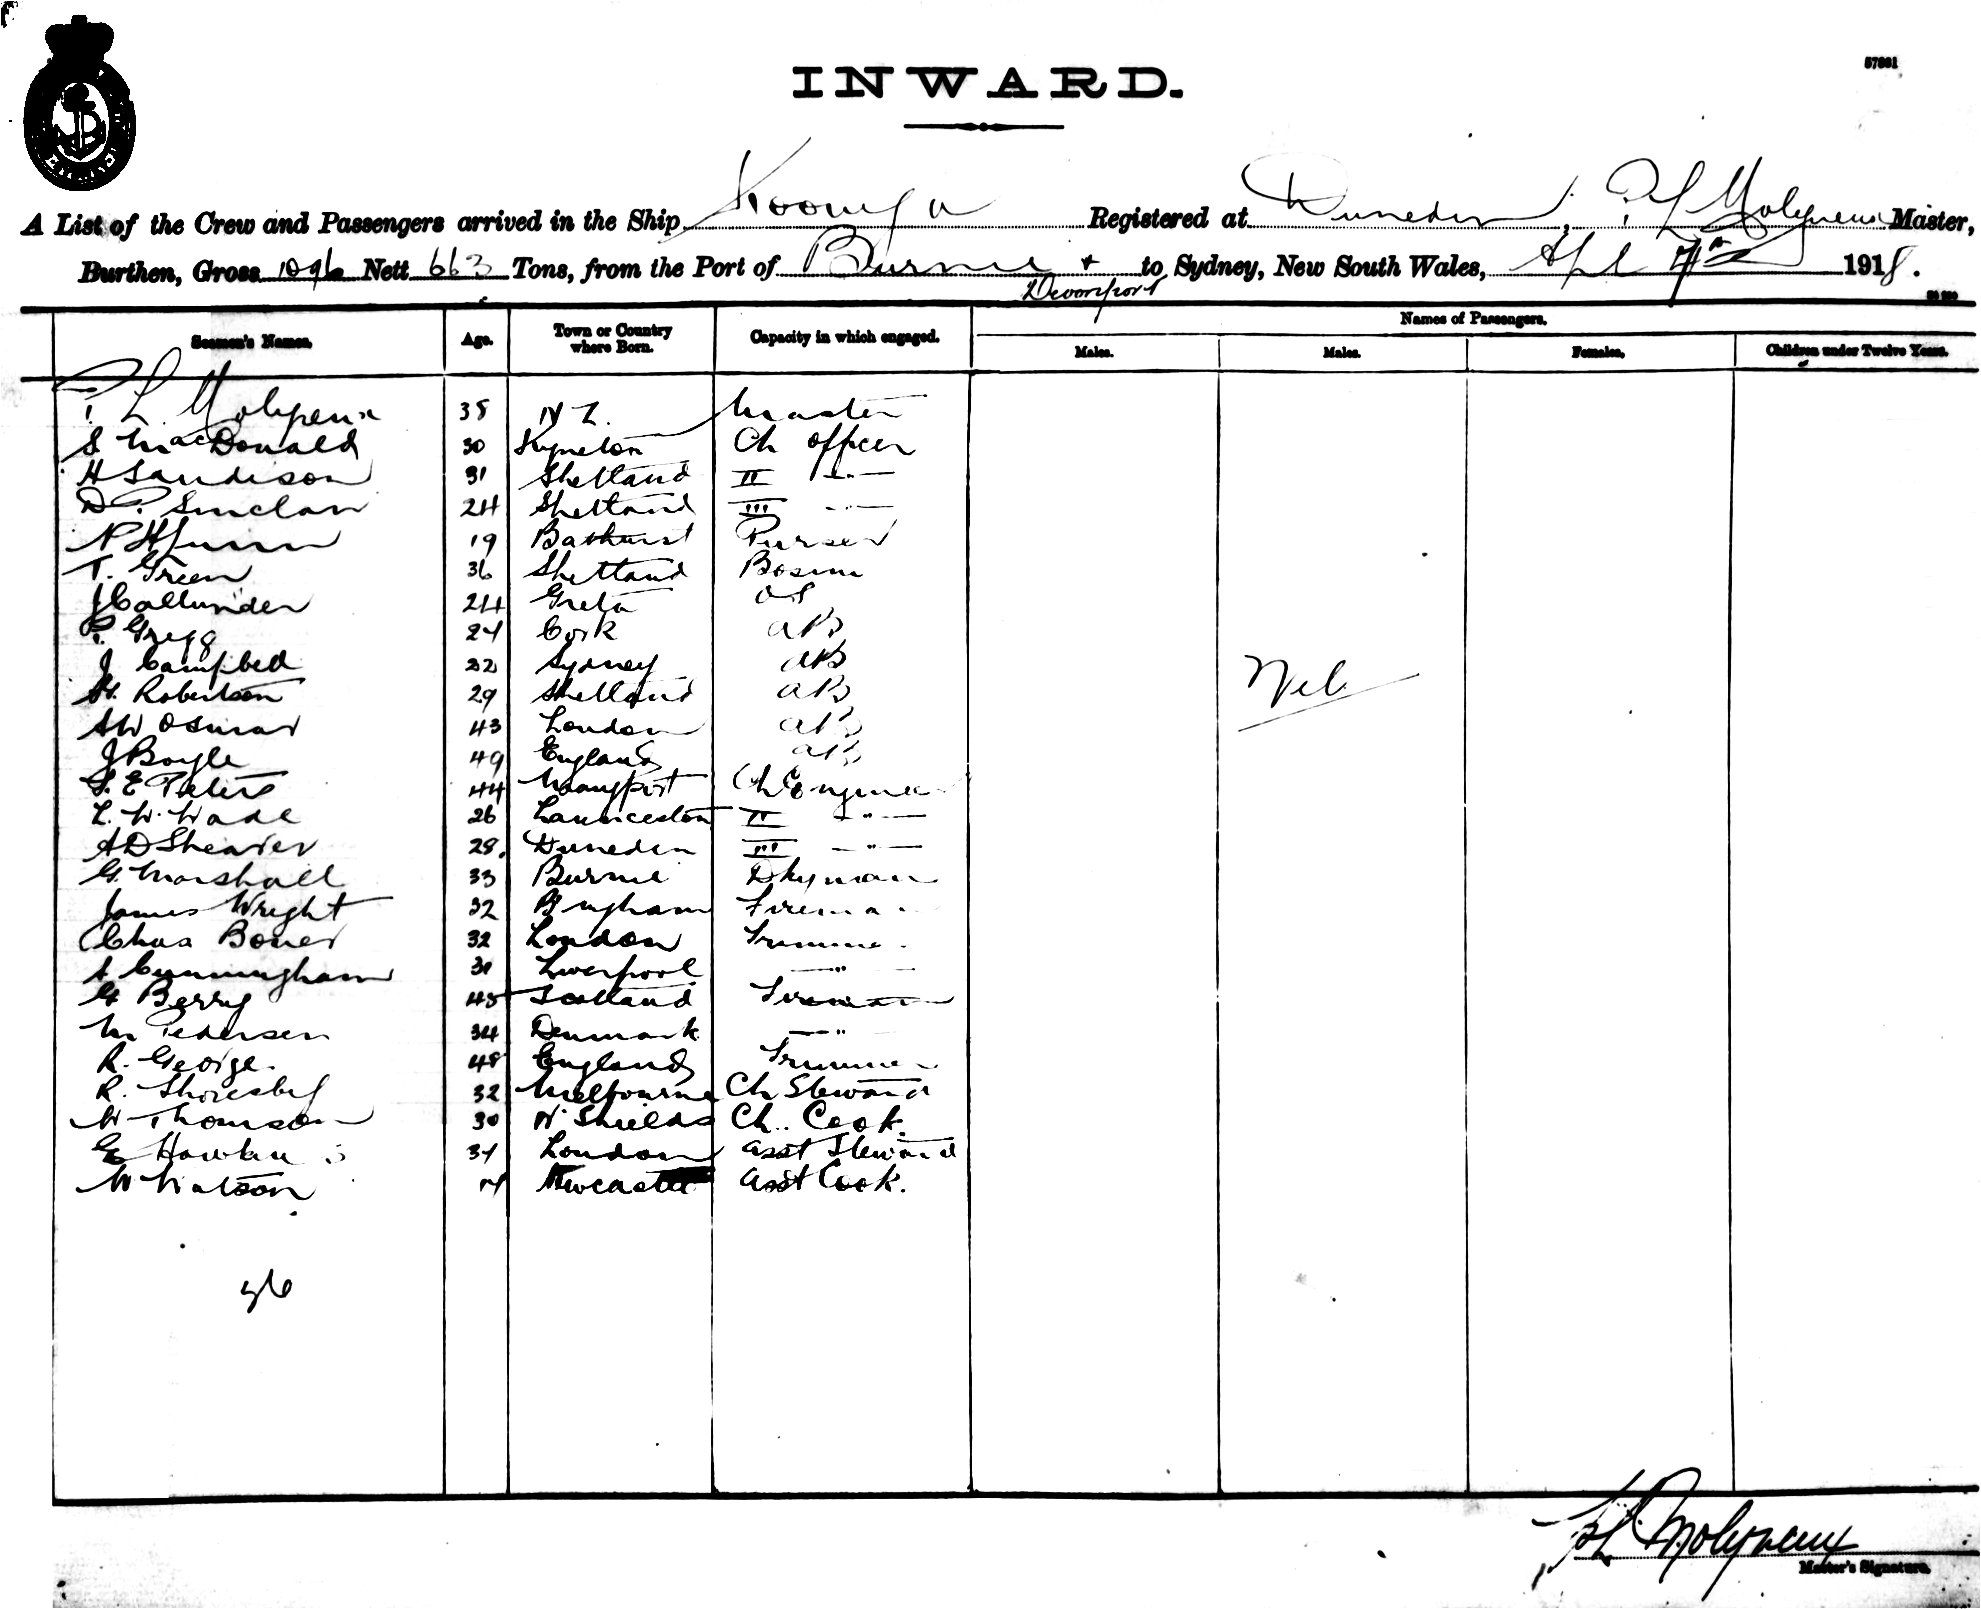 57881
INWARD.
A List of the Crew and Passengers arrived in the Ship Kooonya Registered at Dunedin, P L Molyneux Master,
Burthen, Gross 1096 Nett 663 Tons, from the Port of Burnie + Devonport to Sydney, New South Wales, Apl 7th 1918.
Names of Passengers.
Seamen's Names. Age. Town or Country where Born. Capacity in which engaged. Males. Males. Females. Children under Twelve Years.
P L Molyneux 38 N Z. Master
S MacDonald 30 Kyneton Ch Officer
H Sandison 31 Shetland II -"-
D P. Sinclair 24 Shetland III -"-
19 Bathurst Purser
T. Green 36 Shetland Bosun
J Callander 24 Greta OS
P. Gregg 24 Cork AB
J Campbell 22 Sydney AB
Robertson 29 Shetland AB
AW Osmar 43 London AB
J Boyle 49 England AB
S. E Peters 44 Maryport Ch Engineer
L. W. Wade 26 Launceston II -"-
A D Shearer 28. Dunedin III -"-
G. Marshall 33 Burnie Dkyman
James Wright 32 Bingham Fireman
Chas Bower 32 London Trimmer
A Cunningham 31 Liverpool -"-
G Berry 45 Scotland Fireman
M Pedersen 34 Denmark -"-
R. George. 48 England Trimmer
R. Thoresby 32 Melbourne Ch Steward
W Thomson 30 N Shields Ch. Cook.
G Hawkins 34 London asst Steward
W Watson Newcastle asst Cook.
Nil
26
P L Molyneux
Master's Signature.